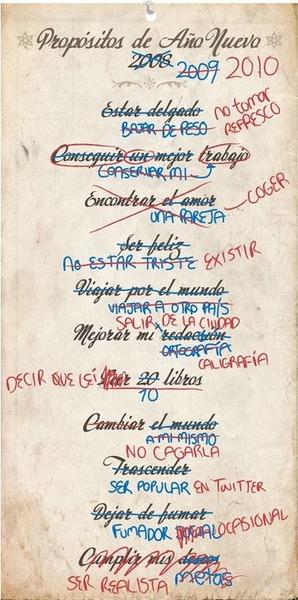 Propósitos de Año Nuevo
2008
2009 2010
Estar delgado
BAJAR DE PESO
no tomar REFRESCO
Conseguir un mejor trabajo
CONSERVAR MI
Encontrar el amor
UNA PAREJA
COGER
Ser feliz
NO ESTAR TRISTE EXISTIR
Viajar por el mundo
VIAJAR A OTRO PAÍS
SALIR DE LA CIUDAD
Mejorar mi redacción
ORTOGRAFÍA
CALIGRAFÍA
DECIR QUE LEÍ Leer 20 libros
10
Cambiar el mundo
A MI MISMO
NO CAGARLA
Trascender
SER POPULAR EN TWITTER
Dejar de fumar
FUMADOR SOCIAL OCASIONAL
Cumplir mis deseos
SER REALISTA METAS